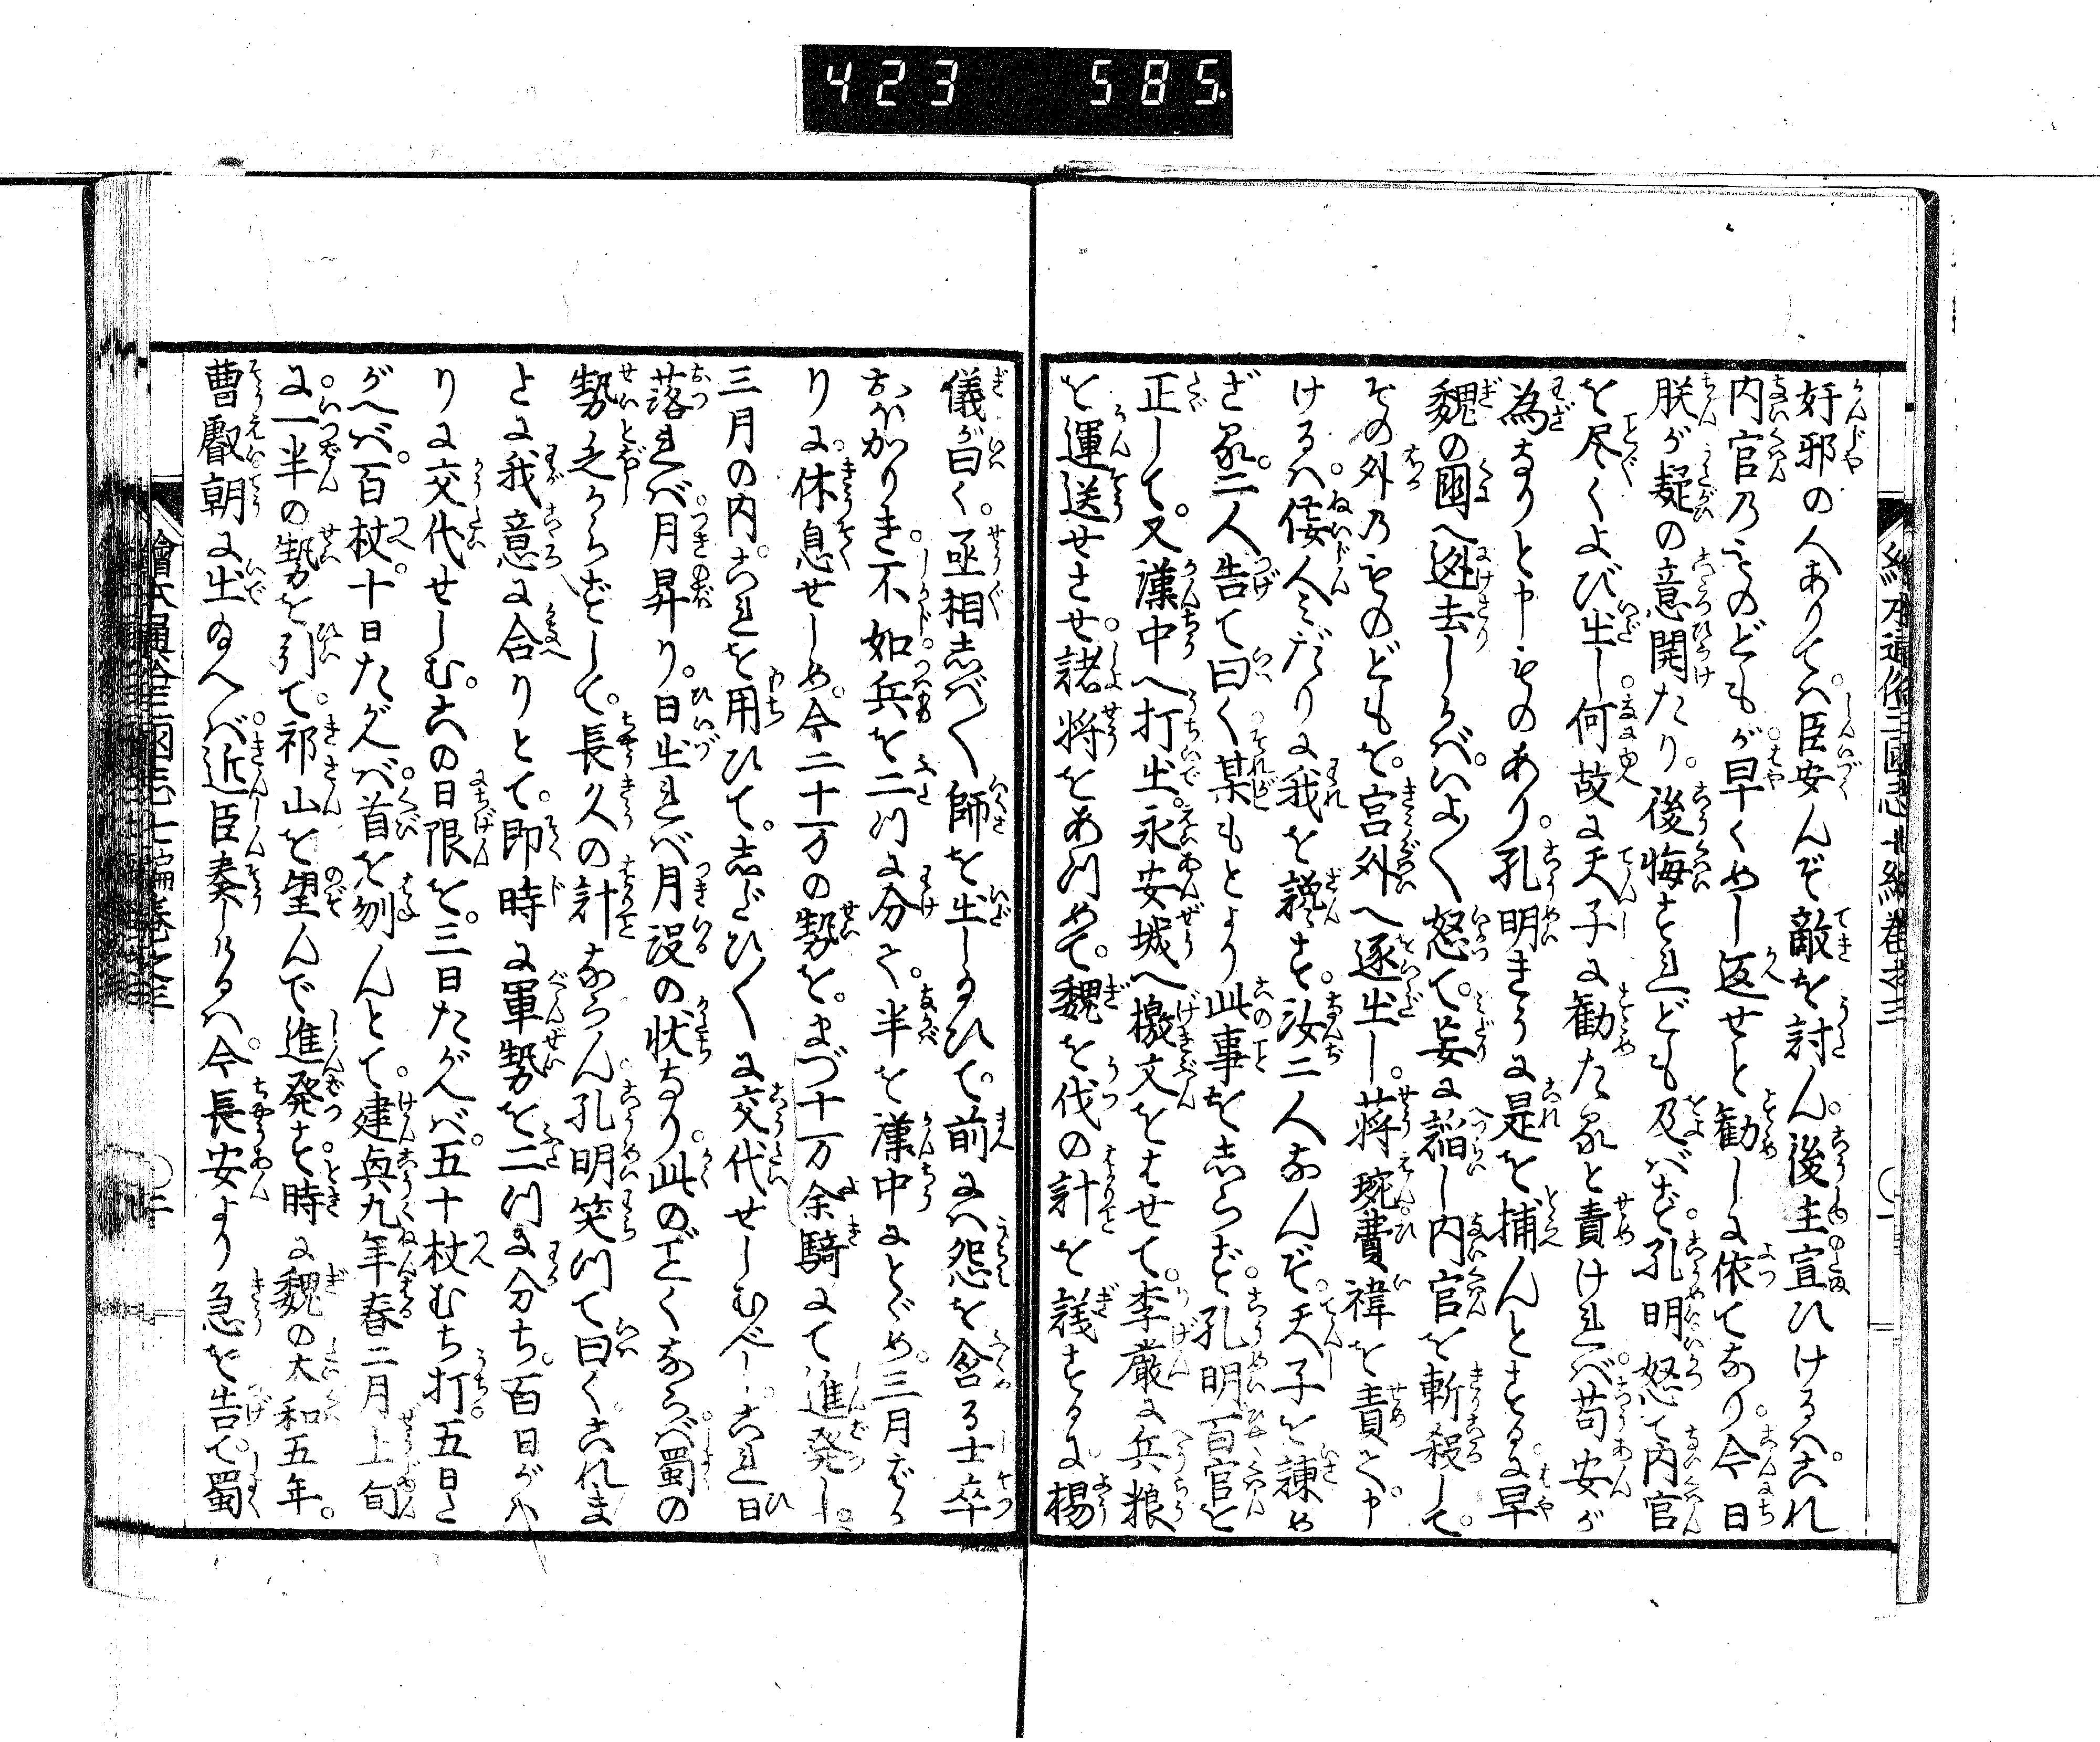 423 585
奸邪の人ありては。臣安んぞ敵を討ん。後主宣ひけるは。これ
内官乃ものどもが早くめし返せと勧しに依てなり。今日
朕が疑の意開たり。後悔すれども及ばず。孔明怒て内官
を尽くよび出し。何故に天子に勧たると責ければ。苟安が
為なりと申ものあり。孔明きうに是を捕んとするに。早
魏の国へ迯去しかば。いよ〱怒て。妄に謟し内官を斬殺して。
その外乃ものどもを。宮外へ逐出し。蒋琬費禕を責て申
けるは。佞人みだりに我を讒す。汝二人なんぞ。天子を諌め
ざる。二人告て曰く。某もとより此事を志らず。孔明百官を
正して。又漢中へ打出。永安城へ檄文をはせて。李厳に兵粮
を運送せさせ。諸将をあつめて。魏を伐の計を議するに。楊
儀が曰く。丞相志ばく師を出し給ひて。前には怨を含る士卒
おほかりき。不如兵を二つに分て。半を漢中にとゞめ。三月ばか
りに。休息せしめ。今二十万の勢を。まづ十万余騎にて進発し。
三月の内。これを用ひて。志だひ〱に交代せしむべし。これ日
落れば月昇り。日出れば月没の状なり。此のごくならば蜀の
勢乏からずして。長久の計ならん。孔明笑つて曰く。これま
とに我意に合りとて。即時に軍勢を二つに分ち。百日がは
りに交代せしむ。この日限を。三日たがへば。五十杖むち打。五日た
がへば。百杖。十日たがへば。首を刎んとて。建興九年春二月上旬
に。一半の勢を引て。祁山を望んで進発す。時に魏の太和五年。
曹叡朝に出ゐへば。近臣奏しけるは。今長安より急を告て。蜀